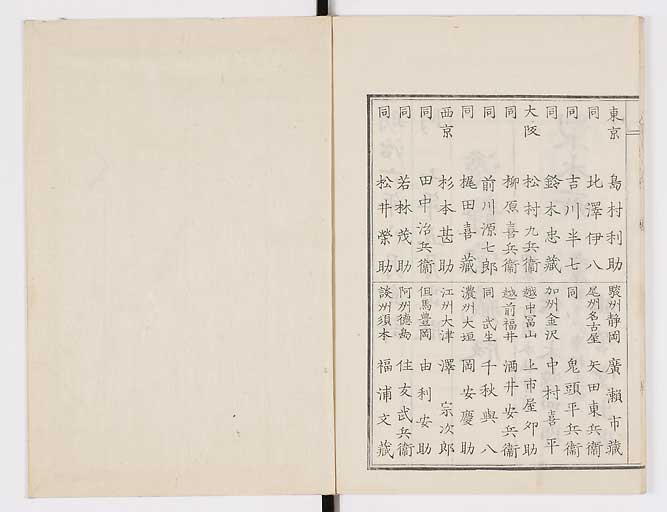 東京 島村利助
同 北澤伊八
同 吉川半七
同 鈴木忠藏
大阪 松村九兵衞
同 柳原喜兵衞
同 前川源七郎
同 梶田喜藏
西京 杉本甚助
同 田中治兵衞
同 若林茂助
同 松井榮助
駿州静岡 廣瀬市藏
尾州名古屋 矢田東兵衞
同 鬼頭平兵衞
加州金沢 中村喜平
越中冨山 上市屋卯助
越前福井 酒井安兵衞
同武生 千秋與八
濃州大垣 岡安慶助
江州大津 澤宗次郎
但馬豊岡 由利安助
阿州德島 住友武兵衞
談州須本 福浦文藏